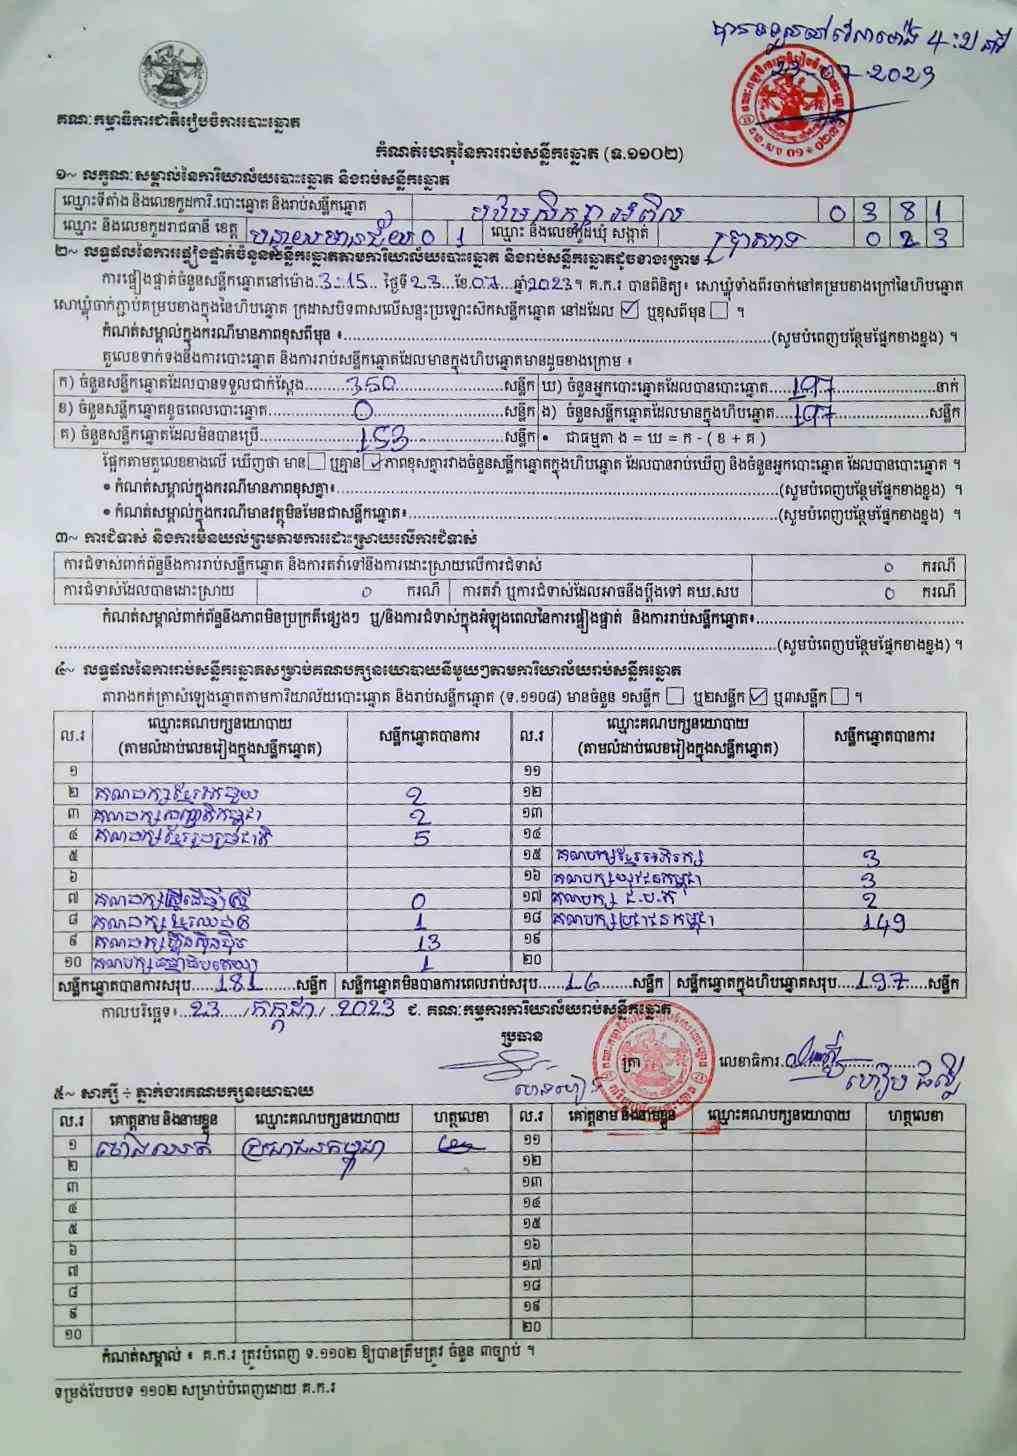 បានទទួលនៅវេលាម៉ោង 4:
23-07-2023
គណៈកម្មាធិការជាតិរៀបចំការបោះឆ្នោត
កំណត់ហេតុនៃការរាប់សន្លឹកឆ្នោត (ទ.១១០២)
១~ លក្ខណៈសម្គាល់នៃការិយាល័យបោះឆ្នោត និងរាប់សន្លឹកឆ្នោត
ឈ្មោះទីតាំង និងលេខកូដការិ.បោះឆ្នោត និងរាប់សន្លឹកឆ្នោត 0 3 8 1
ឈ្មោះ និងលេខកូដរាជធានី ខេត្ត បន្ទាយមានជ័យ 0 1 ឈ្មោះ និងលេខកូដឃុំ សង្កាត់ ប្រាសាទ 0 2 3
២~ លទ្ធផលនៃការផ្ទៀងផ្ទាត់ចំនួនសន្លឹកឆ្នោតតាមការិយាល័យបោះឆ្នោត និងរាប់សន្លឹកឆ្នោតដូចខាងក្រោម ÷
ការផ្ទៀងផ្ទាត់ចំនួនសន្លឹកឆ្នោតនៅម៉ោង.3:15... ថ្ងៃទី23...ខែ.07...ឆ្នាំ2023។ គ.ក.រ បានពិនិត្យ៖ សោឃ្លុំទាំងពីរចាក់នៅគម្របខាងក្រៅនៃហិបឆ្នោត
សោឃ្លុំចាក់ភ្ជាប់គម្របខាងក្នុងនៃហិបឆ្នោត ក្រដាសបិទពាសលើសន្ទះប្រឡោះស៊កសន្លឹកឆ្នោត នៅដដែល ☑ ឬខុសពីមុន ☐ ។
កំណត់សម្គាល់ក្នុងករណីមានភាពខុសពីមុន ៖........(សូមបំពេញបន្ថែមផ្នែកខាងខ្នង) ។
តួលេខទាក់ទងនឹងការបោះឆ្នោត និងការរាប់សន្លឹកឆ្នោតដែលមានក្នុងហិបឆ្នោតមានដូចខាងក្រោម ៖
ក) ចំនួនសន្លឹកឆ្នោតដែលបានទទួលជាក់ស្តែង......350......សន្លឹក ឃ) ចំនួនអ្នកបោះឆ្នោតដែលបានបោះឆ្នោត....197......នាក់
ខ) ចំនួនសន្លឹកឆ្នោតខូចពេលបោះឆ្នោត......0......សន្លឹក ង) ចំនួនសន្លឹកឆ្នោតដែលមានក្នុងហិបឆ្នោត....197......សន្លឹក
គ) ចំនួនសន្លឹកឆ្នោតដែលមិនបានប្រើ......153......សន្លឹក • ជាធម្មតា ង = ឃ = ក - ( ខ + គ )
ផ្អែកតាមតួលេខខាងលើ ឃើញថា មាន ☐ ឬគ្មាន ☑ ភាពខុសគ្នារវាងចំនួនសន្លឹកឆ្នោតក្នុងហិបឆ្នោត ដែលបានរាប់ឃើញ និងចំនួនអ្នកបោះឆ្នោត ដែលបានបោះឆ្នោត ។
• កំណត់សម្គាល់ក្នុងករណីមានភាពខុសគ្នា៖........(សូមបំពេញបន្ថែមផ្នែកខាងខ្នង) ។
• កំណត់សម្គាល់ក្នុងករណីមានវត្ថុមិនមែនជាសន្លឹកឆ្នោត៖........(សូមបំពេញបន្ថែមផ្នែកខាងខ្នង) ។
៣~ ការជំទាស់ និងការមិនយល់ព្រមតាមការដោះស្រាយលើការជំទាស់
ការជំទាស់ពាក់ព័ន្ធនឹងការរាប់សន្លឹកឆ្នោត និងការតវ៉ាទៅនឹងការដោះស្រាយលើការជំទាស់ 0 ករណី
ការជំទាស់ដែលបានដោះស្រាយ 0 ករណី ការតវ៉ា ឬការជំទាស់ដែលអាចនឹងប្តឹងទៅ គឃ.សប 0 ករណី
កំណត់សម្គាល់ពាក់ព័ន្ធនឹងភាពមិនប្រក្រតីផ្សេងៗ ឬ/និងការជំទាស់ក្នុងអំឡុងពេលនៃការផ្ទៀងផ្ទាត់ និងការរាប់សន្លឹកឆ្នោត៖........
........(សូមបំពេញបន្ថែមផ្នែកខាងខ្នង) ។
៤~ លទ្ធផលនៃការរាប់សន្លឹកឆ្នោតសម្រាប់គណបក្សនយោបាយនីមួយៗតាមការិយាល័យរាប់សន្លឹកឆ្នោត
តារាងកត់ត្រាសំឡេងឆ្នោតតាមការិយាល័យបោះឆ្នោត និងរាប់សន្លឹកឆ្នោត (ទ.១១០៨) មានចំនួន ១សន្លឹក ☐ ឬ២សន្លឹក ☑ ឬ៣សន្លឹក ☐ ។
ល.រ ឈ្មោះគណបក្សនយោបាយ (តាមលំដាប់លេខរៀងក្នុងសន្លឹកឆ្នោត) សន្លឹកឆ្នោតបានការ ល.រ ឈ្មោះគណបក្សនយោបាយ (តាមលំដាប់លេខរៀងក្នុងសន្លឹកឆ្នោត) សន្លឹកឆ្នោតបានការ
១ ១១
២ គណបក្សខ្មែររួបរួម 2 ១២
៣ គណបក្សសញ្ជាតិកម្ពុជា 2 ១៣
៤ គណបក្សខ្មែររួបរួមជាតិ 5 ១៤
៥ ១៥ គណបក្សខ្មែរអភិរក្ស 3
៦ ១៦ គណបក្សយុវជនកម្ពុជា 3
៧ គណបក្សស្ត្រីដើម្បីស្ត្រី 0 ១៧ គណបក្ស 2
៨ គណបក្សខ្មែរឈប់ក្រ 1 ១៨ គណបក្សប្រជាជនកម្ពុជា 149
៩ គណបក្សហ៊្វុនស៊ិនប៉ិច 13 ១៩
១០ គណបក្សធម្មាធិបតេយ្យ 1 ២០
សន្លឹកឆ្នោតបានការសរុប.....181.....សន្លឹក សន្លឹកឆ្នោតមិនបានការពេលរាប់សរុប.....16.....សន្លឹក សន្លឹកឆ្នោតក្នុងហិបឆ្នោតសរុប....197....សន្លឹក
កាលបរិច្ឆេទ៖..23../កក្កដា/..2023 ជ. គណៈកម្មការការិយាល័យរាប់សន្លឹកឆ្នោត
ប្រធាន
ត្រា លេខាធិការ
៥~ សាក្សី ÷ ភ្នាក់ងារគណបក្សនយោបាយ
ល.រ គោត្តនាម និងនាមខ្លួន ឈ្មោះគណបក្សនយោបាយ ហត្ថលេខា ល.រ គោត្តនាម និងនាមខ្លួន ឈ្មោះគណបក្សនយោបាយ ហត្ថលេខា
១ ប្រជាជនកម្ពុជា ១១
២ ១២
៣ ១៣
៤ ១៤
៥ ១៥
៦ ១៦
៧ ១៧
៨ ១៨
៩ ១៩
១០ ២០
កំណត់សម្គាល់ ៖ គ.ក.រ ត្រូវបំពេញ ទ.១១០២ ឱ្យបានត្រឹមត្រូវ ចំនួន ៣ច្បាប់ ។
ទម្រង់បែបបទ ១១០២ សម្រាប់បំពេញដោយ គ.ក.រ